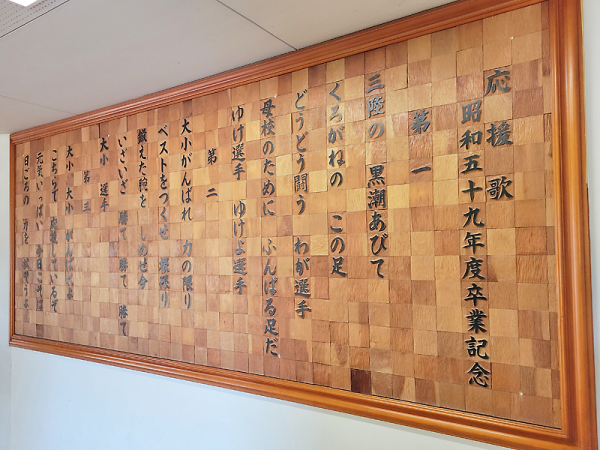 応援歌
昭和五十九年度卒業記念
第一
三陸の 黒潮あびて
くろがねの この足
どうどう闘う わが選手
母校のために ふんばる足だ
ゆけ選手 ゆけよ選手
第二
大小がんばれ 力の限り
ベストをつくせ 根限り
鍛えた腕を しめせ今
いざいざ 勝て 勝て 勝て
大小 選手
第三
大小 大小 がんばれよ
こぞって 応援しているぞ
元気いっぱい 今日こそは
日ごろの 力を